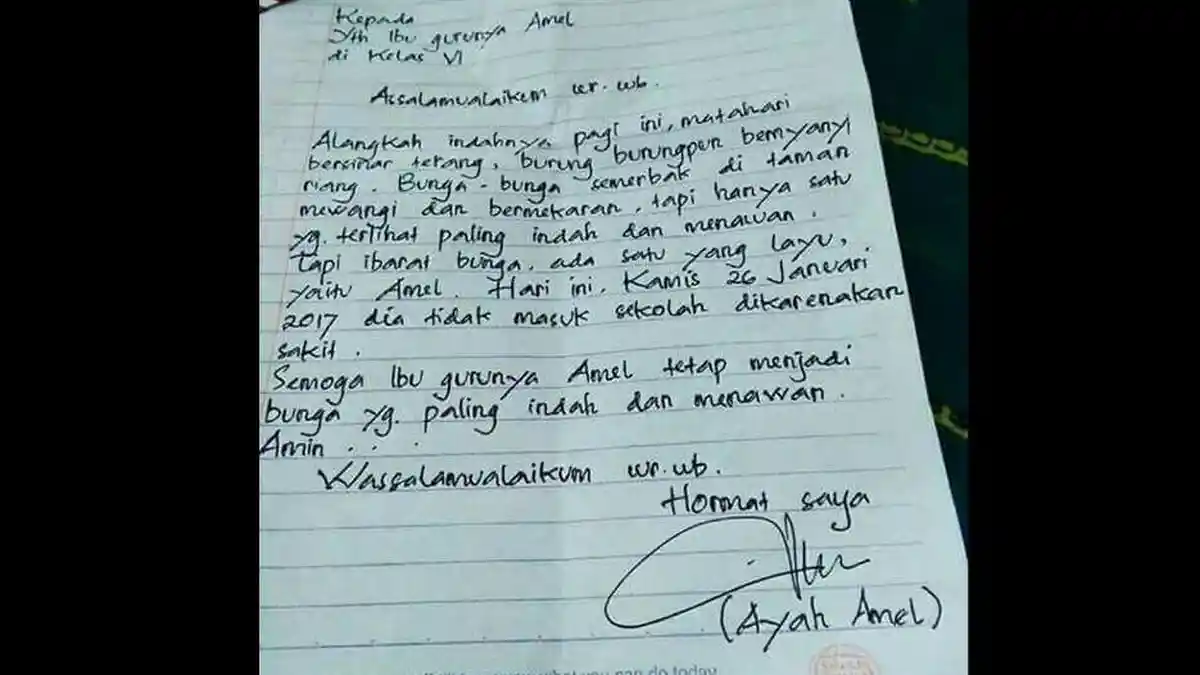 Kepada
Yth Ibu gurunya Amel
di Kelas VI
Assalamualaikum wr. wb.
Alangkah indahnya pagi ini, matahari
bersinar terang, burung burungpun bernyanyi
riang. Bunga-bunga semerbak di taman
mewangi dan bermekaran, tapi hanya satu
yg. terlihat paling indah dan menawan.
Tapi ibarat bunga, ada satu yang layu,
yaitu Amel. Hari ini, Kamis 26 Januari
2017 dia tidak masuk sekolah dikarenakan
sakit.
Semoga Ibu gurunya Amel tetap menjadi
bunga yg. paling indah dan menawan.
Amin...
Wassalamualaikum wr.wb.
Hormat saya
(Ayah Amel)
what you can do today